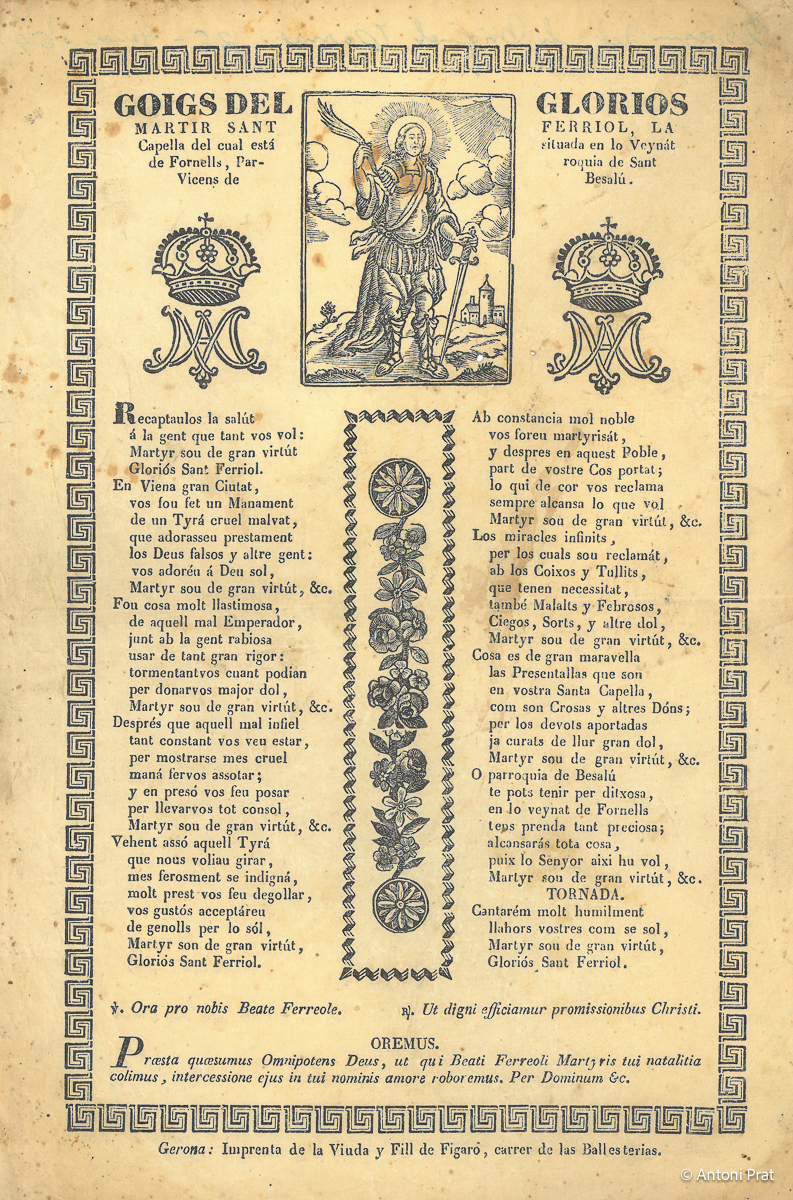 GOIGS DEL GLORIOS
MARTIR SANT FERRIOL, LA
Capella del cual está situada en lo Veynát
de Fornells, Par- roquia de Sant
Vicens de Besalú.
Recaptaulos la salút
á la gent que tant vos vol:
Martyr sou de gran virtút
Gloriós Sant Ferriol.
En Viena gran Ciutat,
vos fou fet un Manament
de un Tyrá cruel malvat,
que adorasseu prestament
los Deus falsos y altre gent:
vos adoréu á Deu sol,
Martyr sou de gran virtút, &c.
Fou cosa molt llastimosa,
de aquell mal Emperador,
junt ab la gent rabiosa
usar de tant gran rigor:
tormentantvos cuant podian
per donarvos major dol,
Martyr sou de gran virtút, &c.
Després que aquell mal infiel
tant constant vos veu estar,
per mostrarse mes cruel
maná fervos assotar;
y en presó vos feu posar
per llevarvos tot consol,
Martyr sou de gran virtút, &c.
Vehent assó aquell Tyrá
que nous voliau girar,
mes ferosment se indigná,
molt prest vos feu degollar,
vos gustós acceptáreu
de genolls per lo sól,
Martyr son de gran virtút,
Gloriós Sant Ferriol.
Ab constancia mol noble
vos foreu martyrisát,
y despres en aquest Poble,
part de vostre Cos portat;
lo qui de cor vos reclama
sempre alcansa lo que vol
Martyr sou de gran virtút, &c.
Los miracles infinits,
per los cuals sou reclamát,
ab los Coixos y Tullits,
que tenen necessitat,
també Malalts y Febrosos,
Ciegos, Sorts, y altre dol,
Martyr sou de gran virtút, &c.
Cosa es de gran maravella
las Presentallas que son
en vostra Santa Capella,
com son Crosas y altres Dóns;
per los devots aportadas
ja curats de llur gran dol,
Martyr sou de gran virtút, &c.
O parroquia de Besalú
te pots tenir per ditxosa,
en lo veynat de Fornells
teps prenda tant preciosa;
alcansarás tota cosa,
puix lo Senyor aixi hu vol,
Martyr sou de gran virtút, &c.
TORNADA.
Cantarém molt humilment
llahors vostres com se sol,
Martyr sou de gran virtút,
Gloriós Sant Ferriol.
℣. Ora pro nobis Beate Ferreole. ℟. Ut digni efficiamur promissionibus Christi.
OREMUS.
Præsta quæsumus Omnipotens Deus, ut qui Beati Ferreoli Martyris tui natalitia
colimus, intercessione ejus in tui nominis amore roboremus. Per Dominum &c.
Gerona: Imprenta de la Viuda y Fill de Figaró, carrer de las Ballesterias.
© Antoni Prat